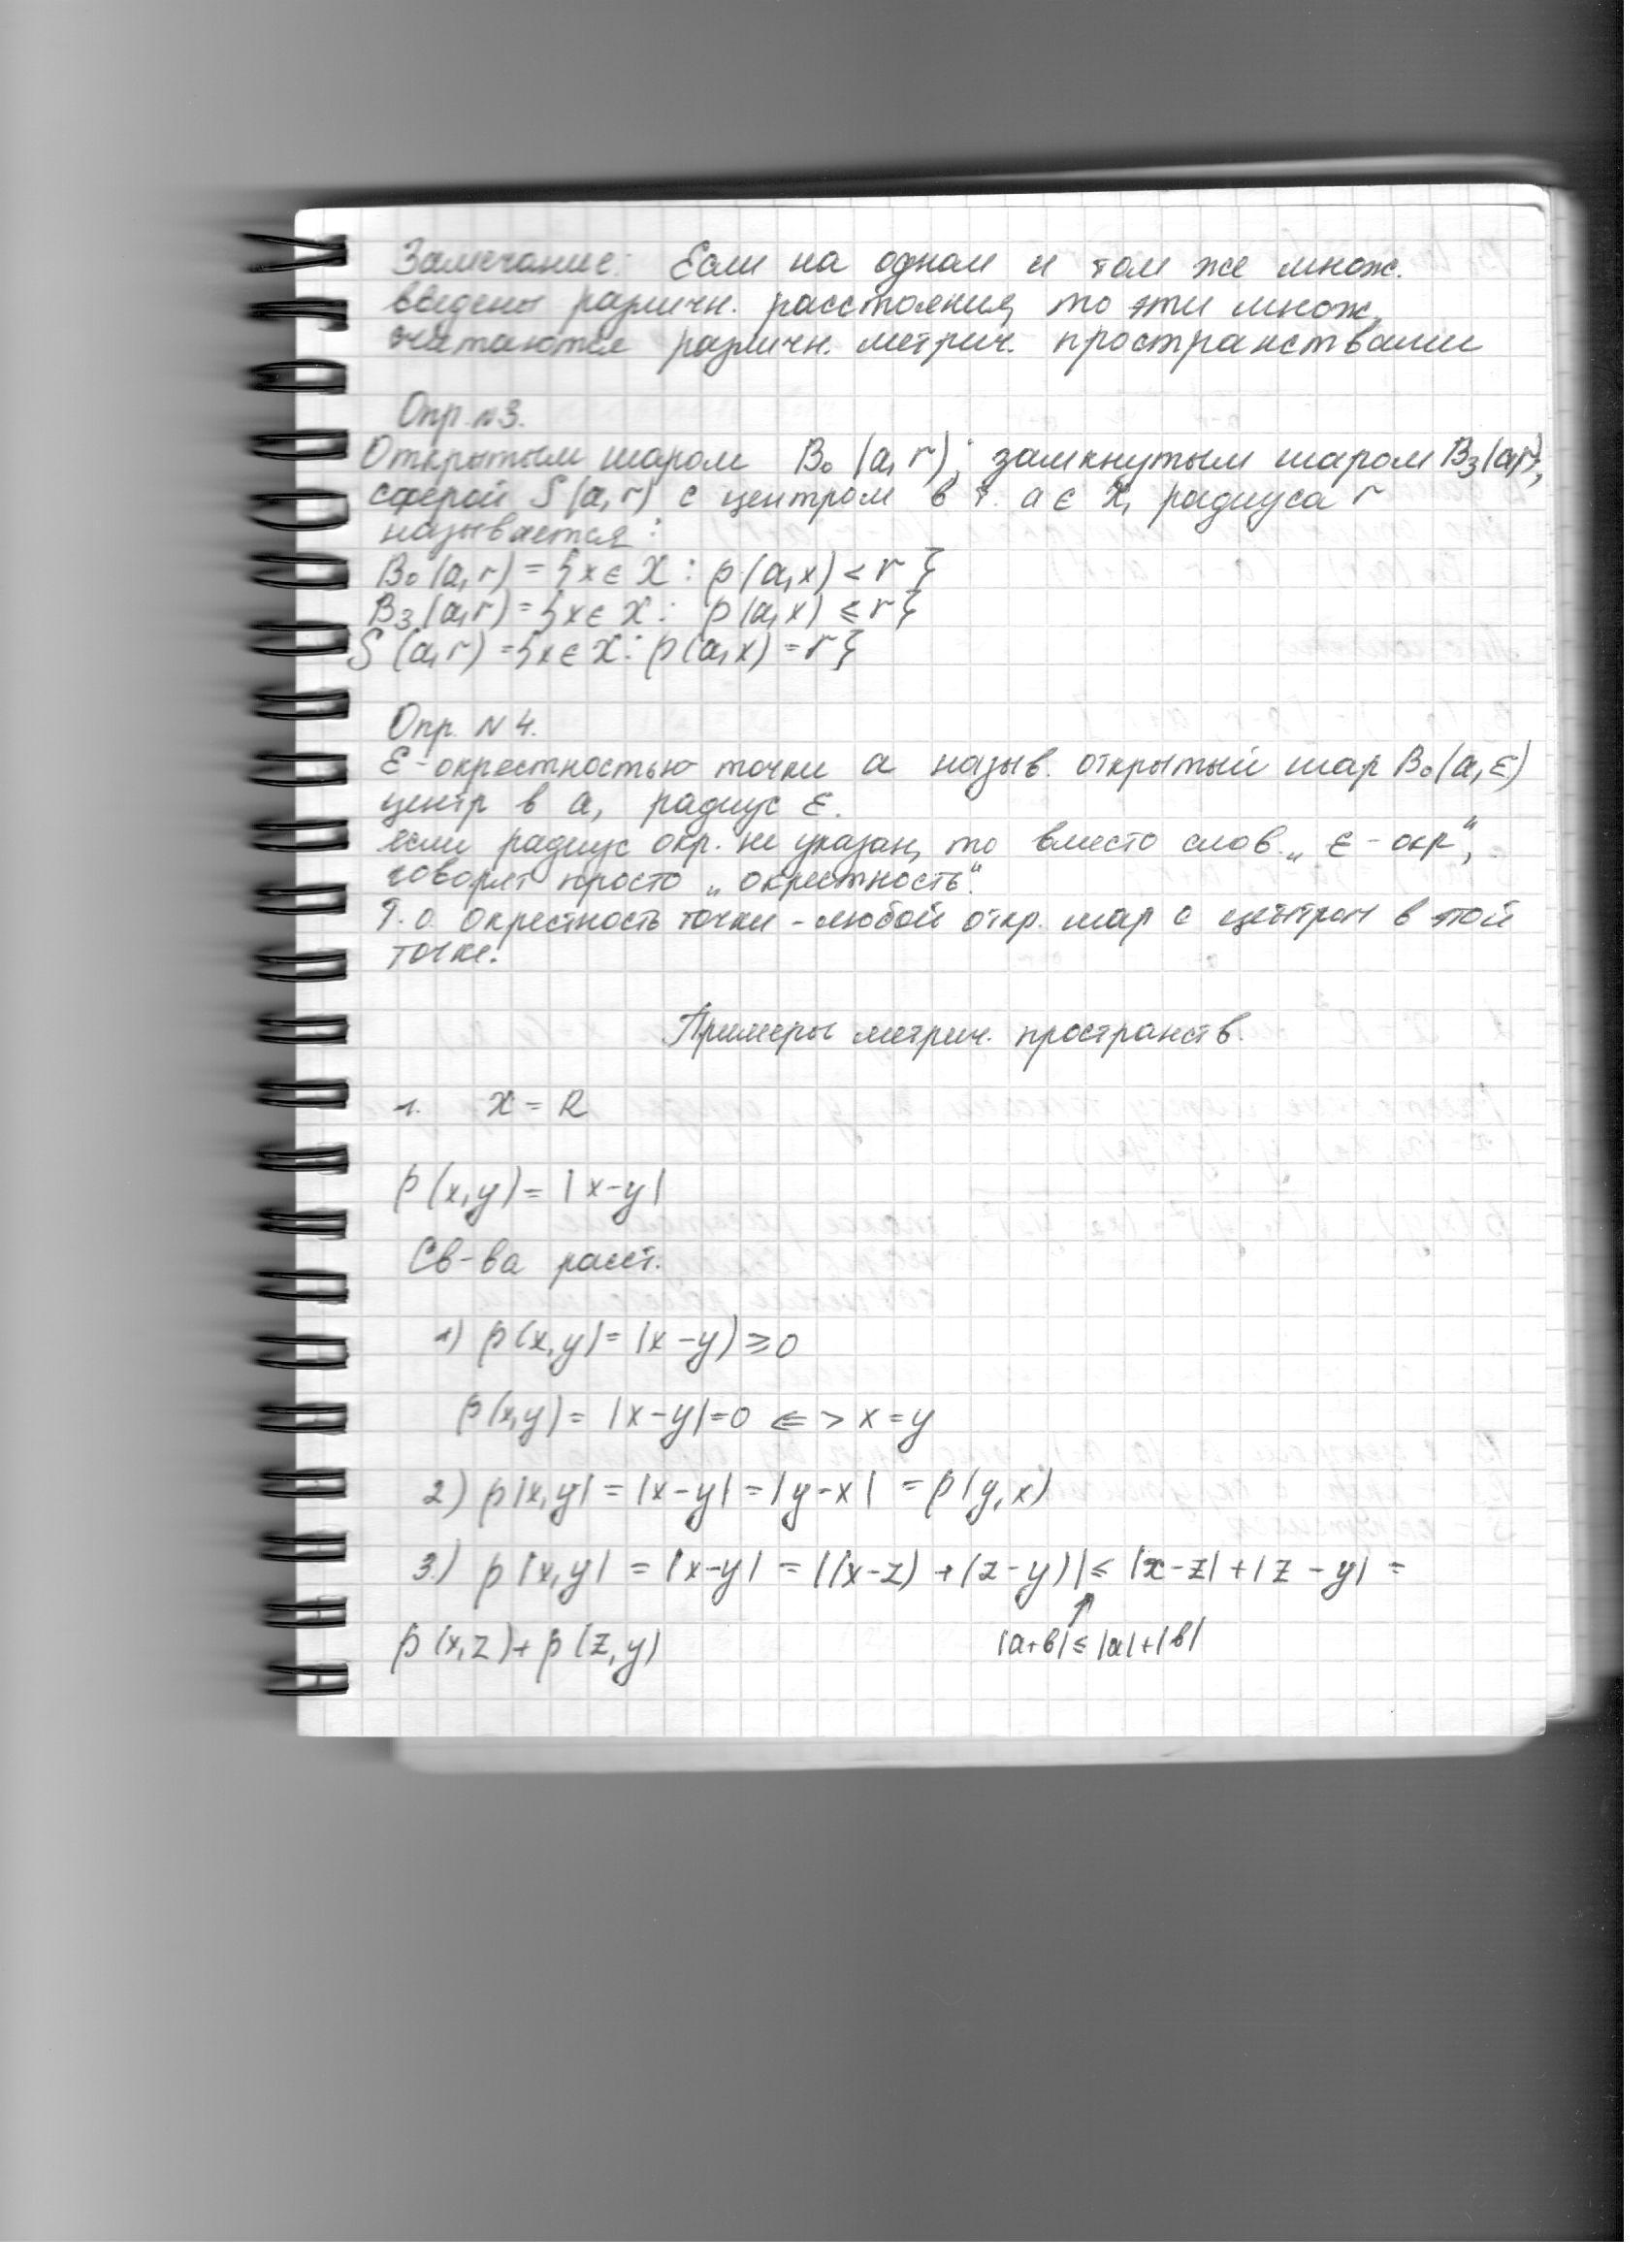 Замечание: Если на одном и том же множ.
введены различн. расстояния, то эти множ.
считаются различн. метрич. пространствами
Опр. №3.
Открытым шаром B₀(a,r); замкнутым шаром B₃(a,r);
сферой S(a,r) с центром в т. a ∈ X, радиуса r
называется:
B₀(a,r) = {x ∈ X : ρ(a,x) < r}
B₃(a,r) = {x ∈ X : ρ(a,x) ≤ r}
S(a,r) = {x ∈ X : ρ(a,x) = r}
Опр. №4.
ε-окрестностью точки a назыв. открытый шар B₀(a,ε)
центр в a, радиус ε.
если радиус окр. не указан, то вместо слов „ε-окр“,
говорят просто „окрестность“.
Т.о. окрестность точки - любой откр. шар с центром в этой
точке.
Примеры метрич. пространств.
1. X = R
ρ(x,y) = |x-y|
Св-ва расст.
1) ρ(x,y) = |x-y| ≥ 0
ρ(x,y) = |x-y| = 0 <=> x = y
2) ρ(x,y) = |x-y| = |y-x| = ρ(y,x)
3.) ρ(x,y) = |x-y| = |(x-z)+(z-y)| ≤ |x-z|+|z-y| =
ρ(x,z)+ρ(z,y) |a+b| ≤ |a|+|b|